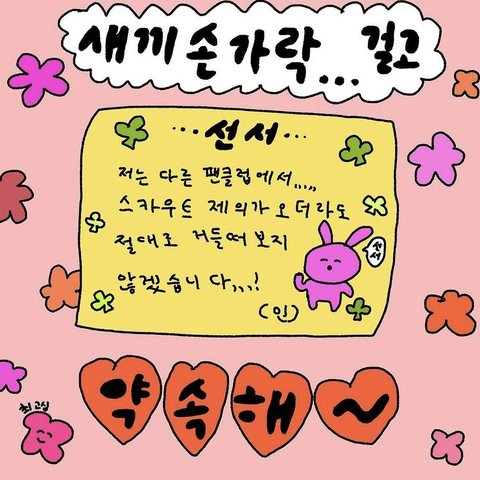 새끼손가락... 걸고
...선서...
저는 다른 팬클럽에서.....
스카우트 제의가 오더라도
절대로 거들떠보지
않겠습니다,,,!
선서
(인)
약속해~
최고심